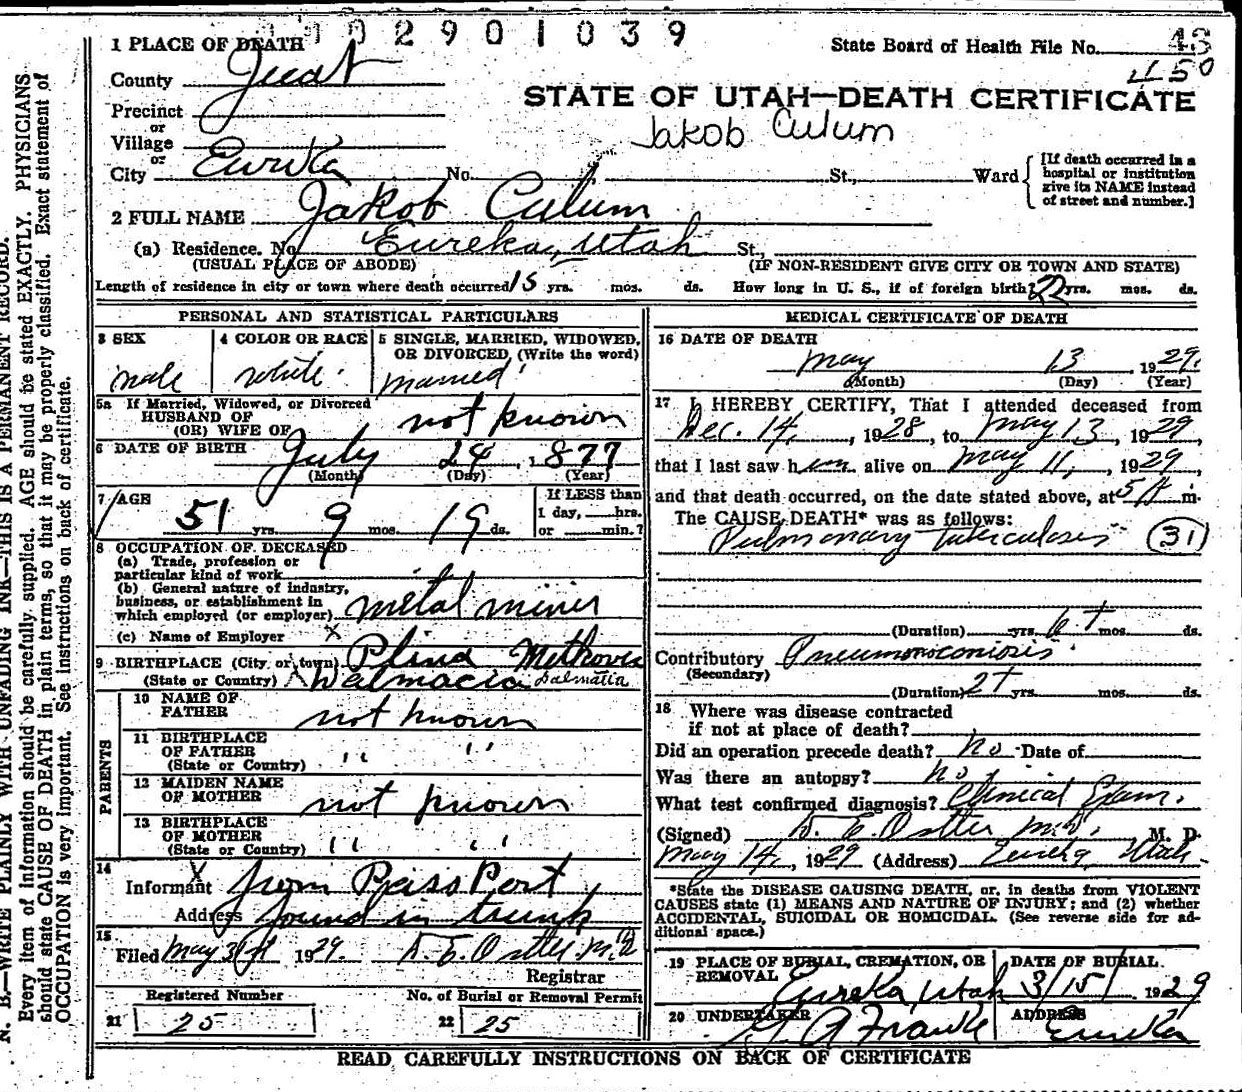 0 2 9 0 1 0 3 9
1 PLACE OF DEATH
State Board of Health File No. 43
450
County Juab
STATE OF UTAH—DEATH CERTIFICATE
Precinct
or
Jakob Culum
Village
or
City Eureka No. St., Ward
[If death occurred in a hospital or institution give its NAME instead of street and number.]
2 FULL NAME Jakob Culum
(a) Residence. No. Eureka, Utah St.,
(USUAL PLACE OF ABODE) (IF NON-RESIDENT GIVE CITY OR TOWN AND STATE)
Length of residence in city or town where death occurred 15 yrs. mos. ds. How long in U. S., if of foreign birth? 22 yrs. mos. ds.
PERSONAL AND STATISTICAL PARTICULARS
3 SEX
male
4 COLOR OR RACE
white
5 SINGLE, MARRIED, WIDOWED,
OR DIVORCED, (Write the word)
married
5a If Married, Widowed, or Divorced
HUSBAND OF
(OR) WIFE OF not known
6 DATE OF BIRTH July 24, 1877
(Month) (Day) (Year)
7 AGE
51 yrs. 9 mos. 19 ds.
If LESS than
1 day, hrs.
or min.?
8 OCCUPATION OF DECEASED
(a) Trade, profession or
particular kind of work
(b) General nature of industry,
business, or establishment in
which employed (or employer) metal miner
(c) Name of Employer x
9 BIRTHPLACE (City or town) Plina Metkovic
(State or Country) Dalmacia Dalmatia
PARENTS
10 NAME OF
FATHER not known
11 BIRTHPLACE
OF FATHER
(State or Country) " "
12 MAIDEN NAME
OF MOTHER not known
13 BIRTHPLACE
OF MOTHER
(State or Country) " "
14 X
Informant from Pass Port
Address found in trunk
15
Filed May 31st 1929. D. E. Ostler M.D.
Registrar
Registered Number
21 25
No. of Burial or Removal Permit
22 25
MEDICAL CERTIFICATE OF DEATH
16 DATE OF DEATH
May 13, 1929.
(Month) (Day) (Year)
17 I HEREBY CERTIFY, That I attended deceased from
Dec. 14, 1928, to May 13, 1929,
that I last saw him alive on May 11, 1929,
and that death occurred, on the date stated above, at 5 A m.
The CAUSE DEATH* was as follows:
Pulmonary tuberculosis 31
(Duration) yrs. 6+ mos. ds.
Contributory Pneumonoconiosis
(Secondary)
(Duration) 2+ yrs. mos. ds.
18 Where was disease contracted
if not at place of death?
Did an operation precede death? no Date of
Was there an autopsy? no
What test confirmed diagnosis? Clinical Exam.
(Signed) D. E. Ostler M.D. M. D.
May 14, 1929 (Address) Eureka Utah
*State the DISEASE CAUSING DEATH, or, in deaths from VIOLENT
CAUSES state (1) MEANS AND NATURE OF INJURY; and (2) whether
ACCIDENTAL, SUICIDAL OR HOMICIDAL. (See reverse side for ad-
ditional space.)
19 PLACE OF BURIAL, CREMATION, OR
REMOVAL Eureka, Utah
DATE OF BURIAL
3/15/ 1929
20 UNDERTAKER Franke
ADDRESS
Eureka
READ CAREFULLY INSTRUCTIONS ON BACK OF CERTIFICATE
N. B.—WRITE PLAINLY WITH UNFADING INK—THIS IS A PERMANENT RECORD.
Every item of information should be carefully supplied. AGE should be stated EXACTLY. PHYSICIANS
should state CAUSE OF DEATH in plain terms, so that it may be properly classified. Exact statement of
OCCUPATION is very important. See instructions on back of certificate.